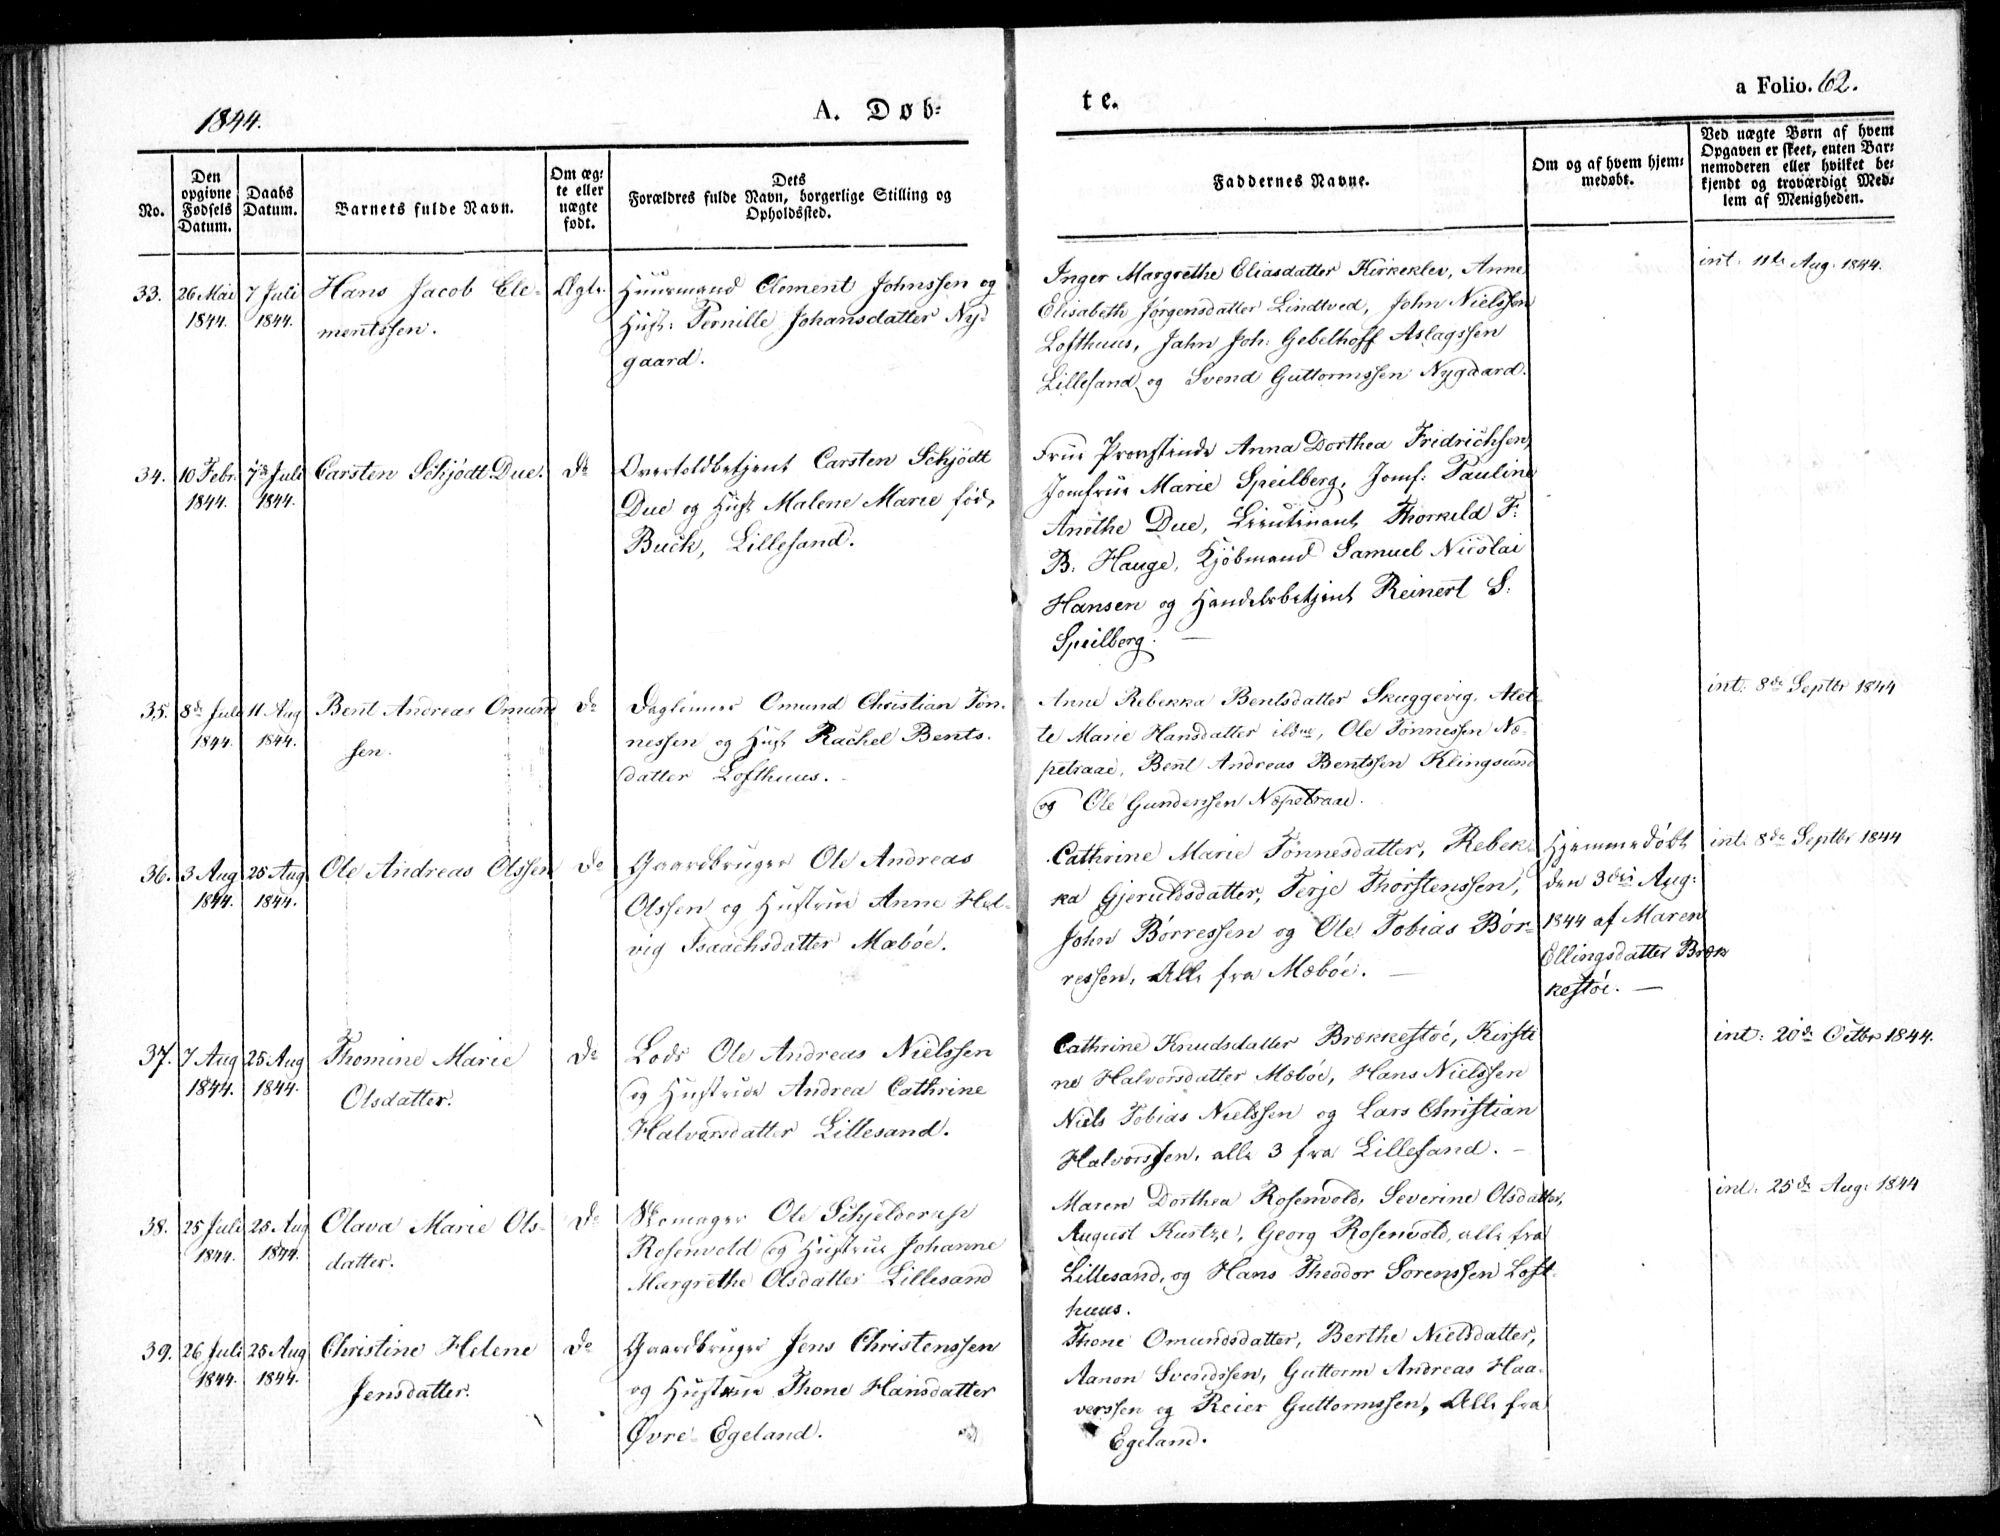 1844.
A. Døb-
te.
a Folio. 62.
No.
Den opgivne Fødsels Datum.
Daabs Datum.
Barnets fulde Navn.
Om ægte eller uægte født.
Dets
Forældres fulde Navn, borgerlige Stilling og
Opholdssted.
Faddernes Navne.
Om og af hvem hjem-
medøbt.
Ved uægte Børn af hvem
Opgaven er skeet, enten Bar-
nemoderen eller hvilket be-
kjendt og troværdigt Med-
lem af Menigheden.
33. 26 Mai 1844. 7 Juli 1844.
Hans Jacob Cle-
mentssen.
Ægte.
Huusmand Clement Johnssen og
Hust: Pernille Johansdatter Ny-
gaard.
Inger Margrethe Eliasdatter Kirkeklev, Anne
Elisabeth Jørgensdatter Lindtved, John Nielssen
Lofthuus, Jahn Joh: Gebelhoff Aslagssen
Lillesand og Svend Guttormssen Nygaard.
int: 11te Aug: 1844.
34. 10 Febr. 1844. 7de Juli 1844.
Carsten Schjödt Due.
Do
Overtoldbetjent Carsten Schjödt
Due og Hust Malene Marie fød,
Buck, Lillesand.
Frue Provstinde Anna Dorthea Fridrichsen,
Jomfrue Marie Speilberg, Jomf: Pauline
Anethe Due, Lieutinant Thorkild F:
B: Hauge, Kjöbmand Samuel Nicolai
Hansen og Handelsbetjent Reinert S:
Speilberg. —
35. 8de Juli 1844. 11 Aug 1844.
Bent Andreas Omund
sen.
Do
Dagleiner Omund Christian Tøn-
nessen og Hust Rachel Bents-
datter Lofthuus.
Anne Rebekka Bentsdatter Skuggevig, Alet-
te Marie Hansdatter, Ole Tønnessen Næ-
petraae, Bent Andreas Bentssen Klingsund
og Ole Gundersen Næpetraae.
int: 8de Septbr 1844
36. 3 Aug 1844. 25 Aug 1844.
Ole Andreas Olssen
Do
Gaardbruger Ole Andreas
Olssen og Hustrue Anne Hel-
vig Isaachsdatter Mæbøe.
Cathrine Marie Tønnesdatter, Rebek-
ka Gjeruldsdatter, Terje Thorstenssen,
John Børressen og Ole Tobias Bør-
ressen, Alle fra Mæbøe. —
Hjemmedøbt
den 3die Aug:
1844 af Maren
Ellingsdatter Bræk
kestøe. —
int: 8de Septbr 1844
37. 7 Aug 1844. 25 Aug 1844.
Thomine Marie
Olsdatter.
Do
Lods Ole Andreas Nielssen
og Hustrue Andrea Cathrine
Halvorsdatter Lillesand.
Cathrine Knudsdatter Brækkestøe, Kirsti
ne Halvorsdatter Mæbøe, Hans Nielssen
Niels Tobias Nielssen og Lars Christian
Halvorssen, alle 3 fra Lillesand. —
int: 20de Octbr 1844.
38. 25 Juli 1844. 25 Aug 1844.
Olava Marie Ols-
datter.
Do
Skomager Ole Schjelderup
Rosenvold og Hustrue Johanne
Margrethe Olsdatter Lillesand
Maren Dorthea Rosenvold, Severine Olsdatter,
August Kurtze, Georg Rosenvold, alle fra
Lillesand, og Hans Theodor Sørenssen Loft-
huus.
int: 25de Aug: 1844
39. 26 Juli 1844. 25 Aug 1844.
Christine Helene
Jensdatter.
Do
Gaardbruger Jens Christenssen
og Hustrue Thone Hansdatter
Øvre-Egeland.
Thone Omundsdatter, Berthe Nielsdatter,
Aanon Svendssen, Guttorm Andreas Haa-
verssen og Reier Guttormssen, Alle fra
Egeland.